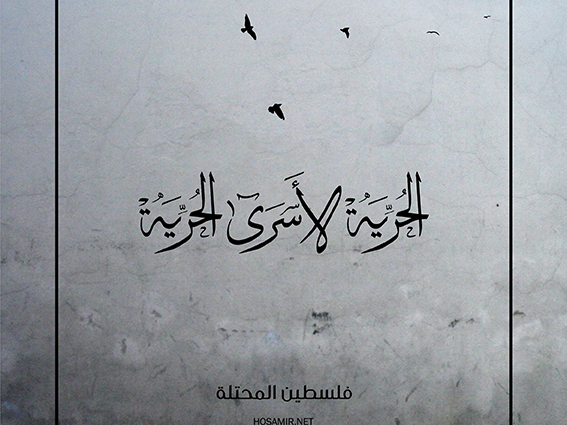 الحُرِّيَة لأَسْرَى الحُرِّيَة
فلسطين المحتلة
HOSAMIR.NET